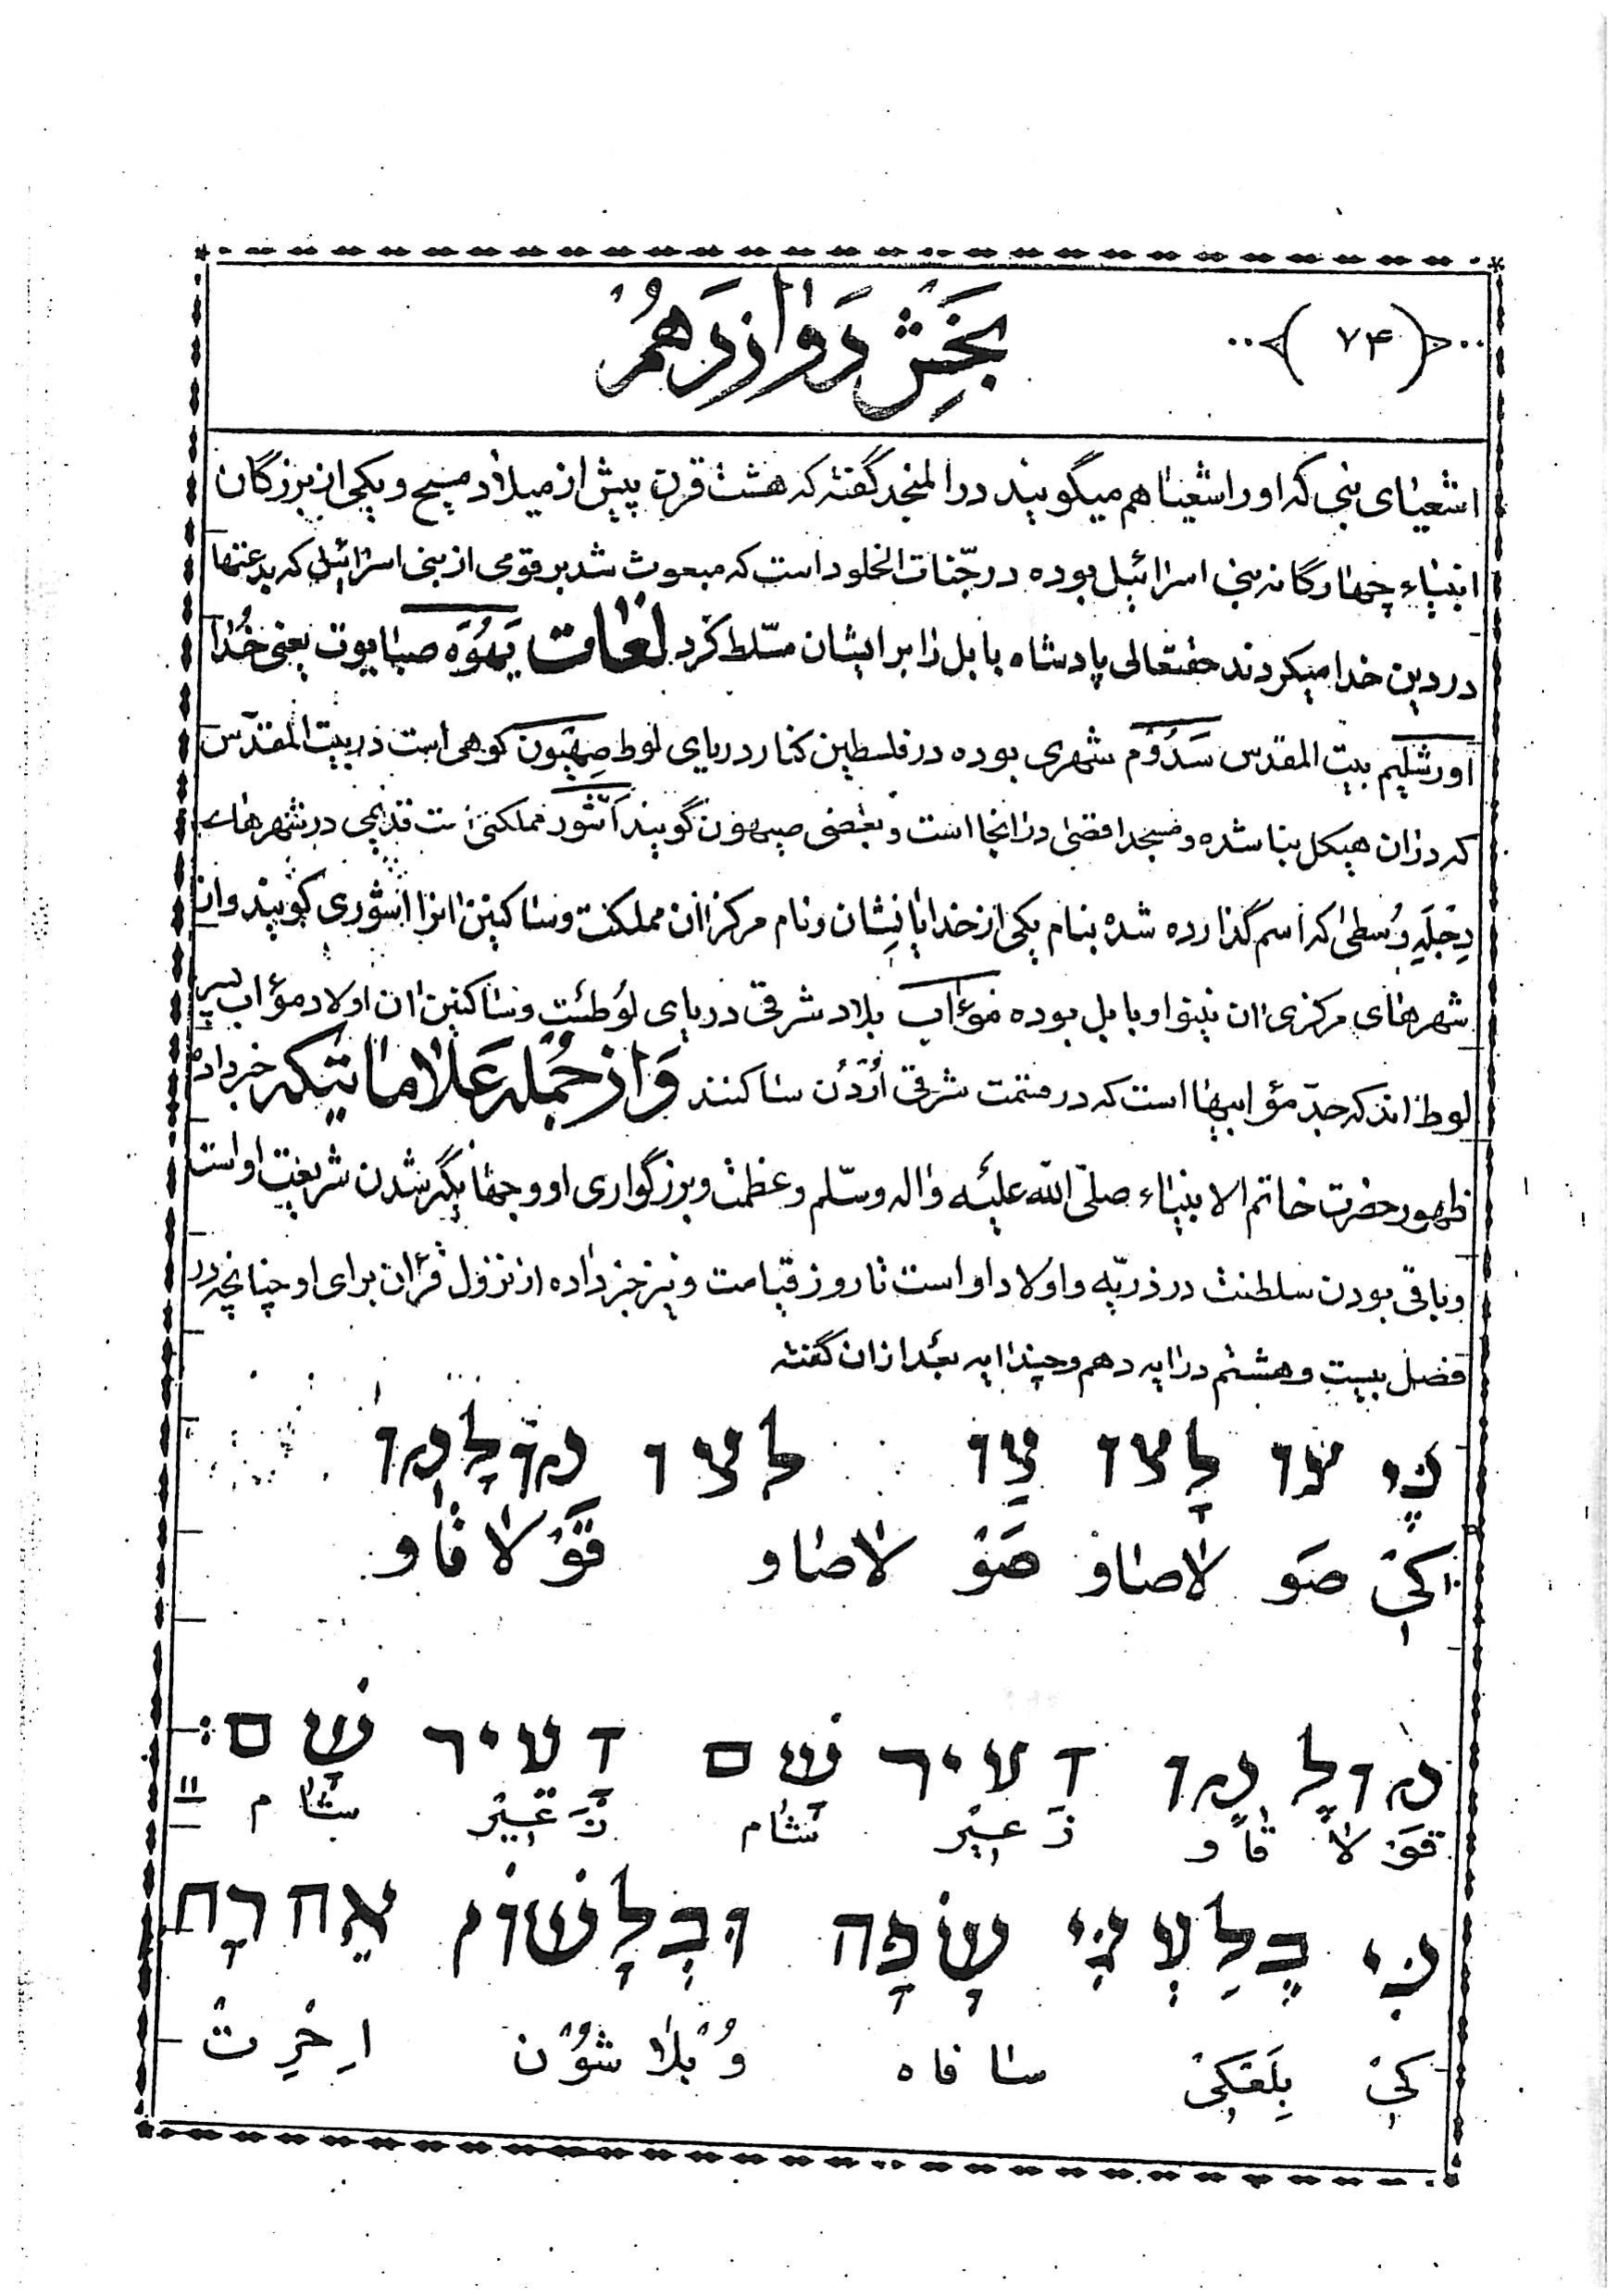 (۷۴)
بَخْشِ دَوازدَهُمْ
اشعیای نبی که او را شعیا هم میگویند در المنجد گفته که هشت قرن پیش از میلاد مسیح و یکی از بزرگان
انبیاء چهارگانه بنی اسرائیل بوده در جنّات الخلود است که مبعوث شد بر قومی از بنی اسرائیل که بدعتها
در دین خدا میکردند حقتعالی پادشاه بابل را بر ایشان مسّلط کرد لغات یَهُوَه صبایوت یعنی خُدا
اورشلیم بیت المقدس سَدُوُم شهری بوده در فلسطین کنار دریای لوط صِهیُون کوهی است در بیت المقدّس
که در ان هیکل بنا شده و مسجد اقصی در انجا است و بعضی صیهون گویند اَشّور مملکتی است قدیمی در شهرهای
دِجلَهِ وُسطی که اسم گذارده شده بنام یکی از خدایانِشان و نام مرکز ان مملکت و ساکنین انرا اشوری گویند و از
شهرهای مرکزی ان نینوا و بابل بوده مؤاب بلاد شرقی دریای لوُطست و ساکنین ان اولاد مؤاب پسر
لوط اند که جدّ مؤابیها است که در قسمت شرقی اُرْدُن ساکنند وَ از جُمله عَلاماتیکه خبر داده
ظهور حضرت خاتم الانبیاء صلّی الله علیه واله وسّلم و عظمت و بزرگواری او و جهانگیر شدن شریعت او است
و باقی بودن سلطنت در ذریّه و اولاد او است تا روز قیامت و نیز خبر داده از نزول قرُان برای او چنانچه در
فصل بیست و هشتم در ایه دهم و چند ایه بعد از ان گفته
כִּי צַו לָצָו צַו לָצָו קַולָקָו
کیْ صَو لاصاو صَوْ لاصاو قَوْلاقاو
קַולָקָו זְעֵיר שָׁם זְעֵיר שָׁם:
قَوْلاقاو زَعیْر شام زَعیْر شام
כִּי בְּלַעֲגֵי שָׂפָה וּבְלָשׁוֹן אַחֶרֶת
کیْ بِلَعَکیْ سافاه وُبْلاشوُن اِخْرِتْ